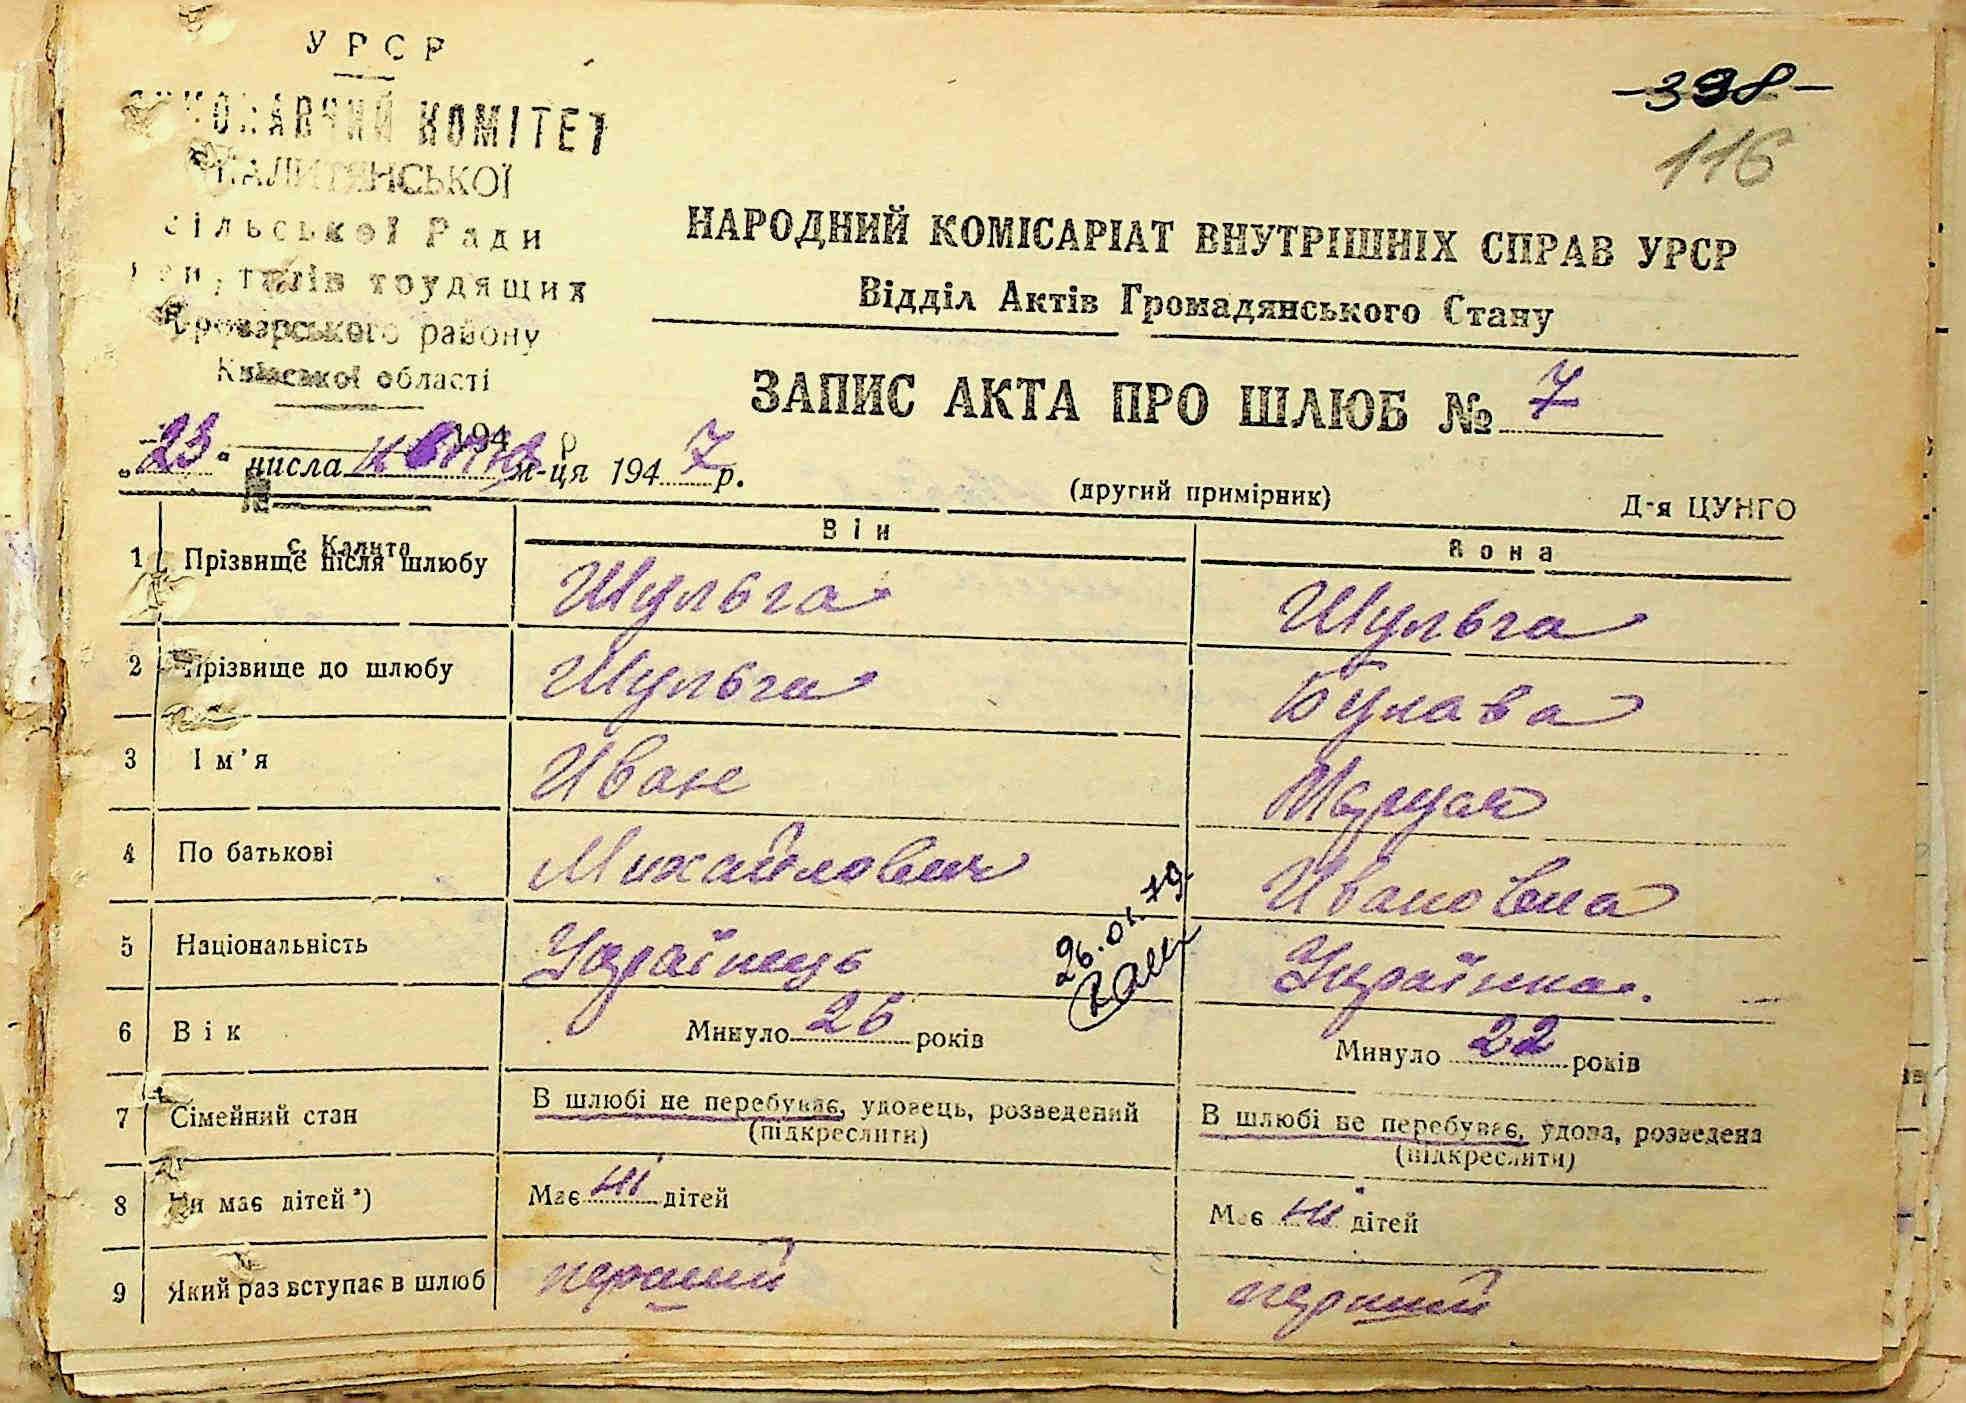 УРСР
ВИКОНАВЧИЙ КОМІТЕТ
КАЛИТЯНСЬКОЇ
сільської Ради
депутатів трудящих
Броварського району
Київської області
194 р
№
с. Калита
-338-
116
НАРОДНИЙ КОМІСАРІАТ ВНУТРІШНІХ СПРАВ УРСР
Відділ Актів Громадянського Стану
ЗАПИС АКТА ПРО ШЛЮБ № 7
„23“ числа квітня м-ця 1947 р.
(другий примірник)
Д-я ЦУНГО
Він Вона
1 Прізвище після шлюбу Шульга Шульга
2 Прізвище до шлюбу Шульга Булава
3 Ім'я Иван Маруся
4 По батькові Михайлович Ивановна
5 Національність Українець Українка.
26.01.79
6 Вік Минуло 26 років Минуло 22 років
7 Сімейний стан В шлюбі не перебуває, удовець, розведений (підкреслити) В шлюбі не перебуває, удова, розведена (підкреслити)
8 Чи має дітей*) Має ні дітей Має ні дітей
9 Який раз вступає в шлюб перший перший